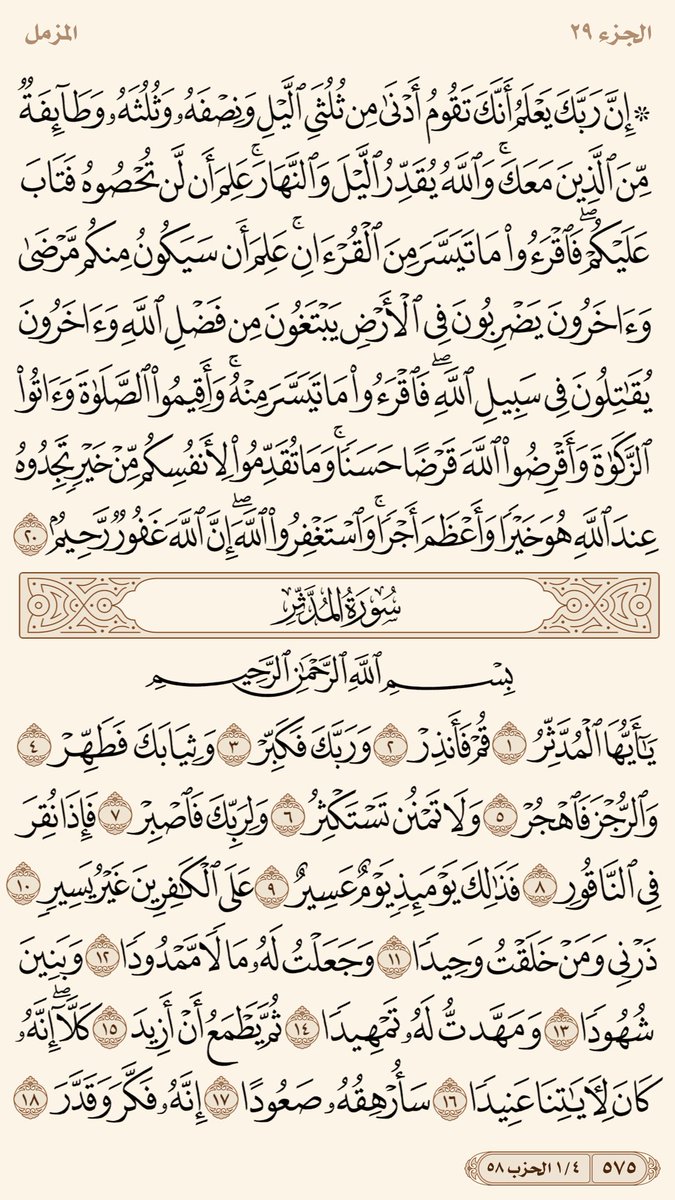 الجزء ٢٩
المزمل
۞ إِنَّ رَبَّكَ يَعْلَمُ أَنَّكَ تَقُومُ أَدْنَىٰ مِن ثُلُثَيِ ٱلَّيْلِ وَنِصْفَهُۥ وَثُلُثَهُۥ وَطَآئِفَةٌ
مِّنَ ٱلَّذِينَ مَعَكَۚ وَٱللَّهُ يُقَدِّرُ ٱلَّيْلَ وَٱلنَّهَارَۚ عَلِمَ أَن لَّن تُحْصُوهُ فَتَابَ
عَلَيْكُمْۖ فَٱقْرَءُوا۟ مَا تَيَسَّرَ مِنَ ٱلْقُرْءَانِۚ عَلِمَ أَن سَيَكُونُ مِنكُم مَّرْضَىٰ
وَءَاخَرُونَ يَضْرِبُونَ فِى ٱلْأَرْضِ يَبْتَغُونَ مِن فَضْلِ ٱللَّهِ وَءَاخَرُونَ
يُقَٰتِلُونَ فِى سَبِيلِ ٱللَّهِۖ فَٱقْرَءُوا۟ مَا تَيَسَّرَ مِنْهُۚ وَأَقِيمُوا۟ ٱلصَّلَوٰةَ وَءَاتُوا۟
ٱلزَّكَوٰةَ وَأَقْرِضُوا۟ ٱللَّهَ قَرْضًا حَسَنًاۚ وَمَا تُقَدِّمُوا۟ لِأَنفُسِكُم مِّنْ خَيْرٍ تَجِدُوهُ
عِندَ ٱللَّهِ هُوَ خَيْرًا وَأَعْظَمَ أَجْرًاۚ وَٱسْتَغْفِرُوا۟ ٱللَّهَۖ إِنَّ ٱللَّهَ غَفُورٌ رَّحِيمٌۢ ٢٠
سُورَةُ المُدَّثِّرِ
بِسْمِ ٱللَّهِ ٱلرَّحْمَٰنِ ٱلرَّحِيمِ
يَٰٓأَيُّهَا ٱلْمُدَّثِّرُ ١ قُمْ فَأَنذِرْ ٢ وَرَبَّكَ فَكَبِّرْ ٣ وَثِيَابَكَ فَطَهِّرْ ٤
وَٱلرُّجْزَ فَٱهْجُرْ ٥ وَلَا تَمْنُن تَسْتَكْثِرُ ٦ وَلِرَبِّكَ فَٱصْبِرْ ٧ فَإِذَا نُقِرَ
فِى ٱلنَّاقُورِ ٨ فَذَٰلِكَ يَوْمَئِذٍ يَوْمٌ عَسِيرٌ ٩ عَلَى ٱلْكَٰفِرِينَ غَيْرُ يَسِيرٍ ١٠
ذَرْنِى وَمَنْ خَلَقْتُ وَحِيدًا ١١ وَجَعَلْتُ لَهُۥ مَالًا مَّمْدُودًا ١٢ وَبَنِينَ
شُهُودًا ١٣ وَمَهَّدتُّ لَهُۥ تَمْهِيدًا ١٤ ثُمَّ يَطْمَعُ أَنْ أَزِيدَ ١٥ كَلَّآۖ إِنَّهُۥ
كَانَ لِءَايَٰتِنَا عَنِيدًا ١٦ سَأُرْهِقُهُۥ صَعُودًا ١٧ إِنَّهُۥ فَكَّرَ وَقَدَّرَ ١٨
٥٧٥
١/٤ الحزب ٥٨